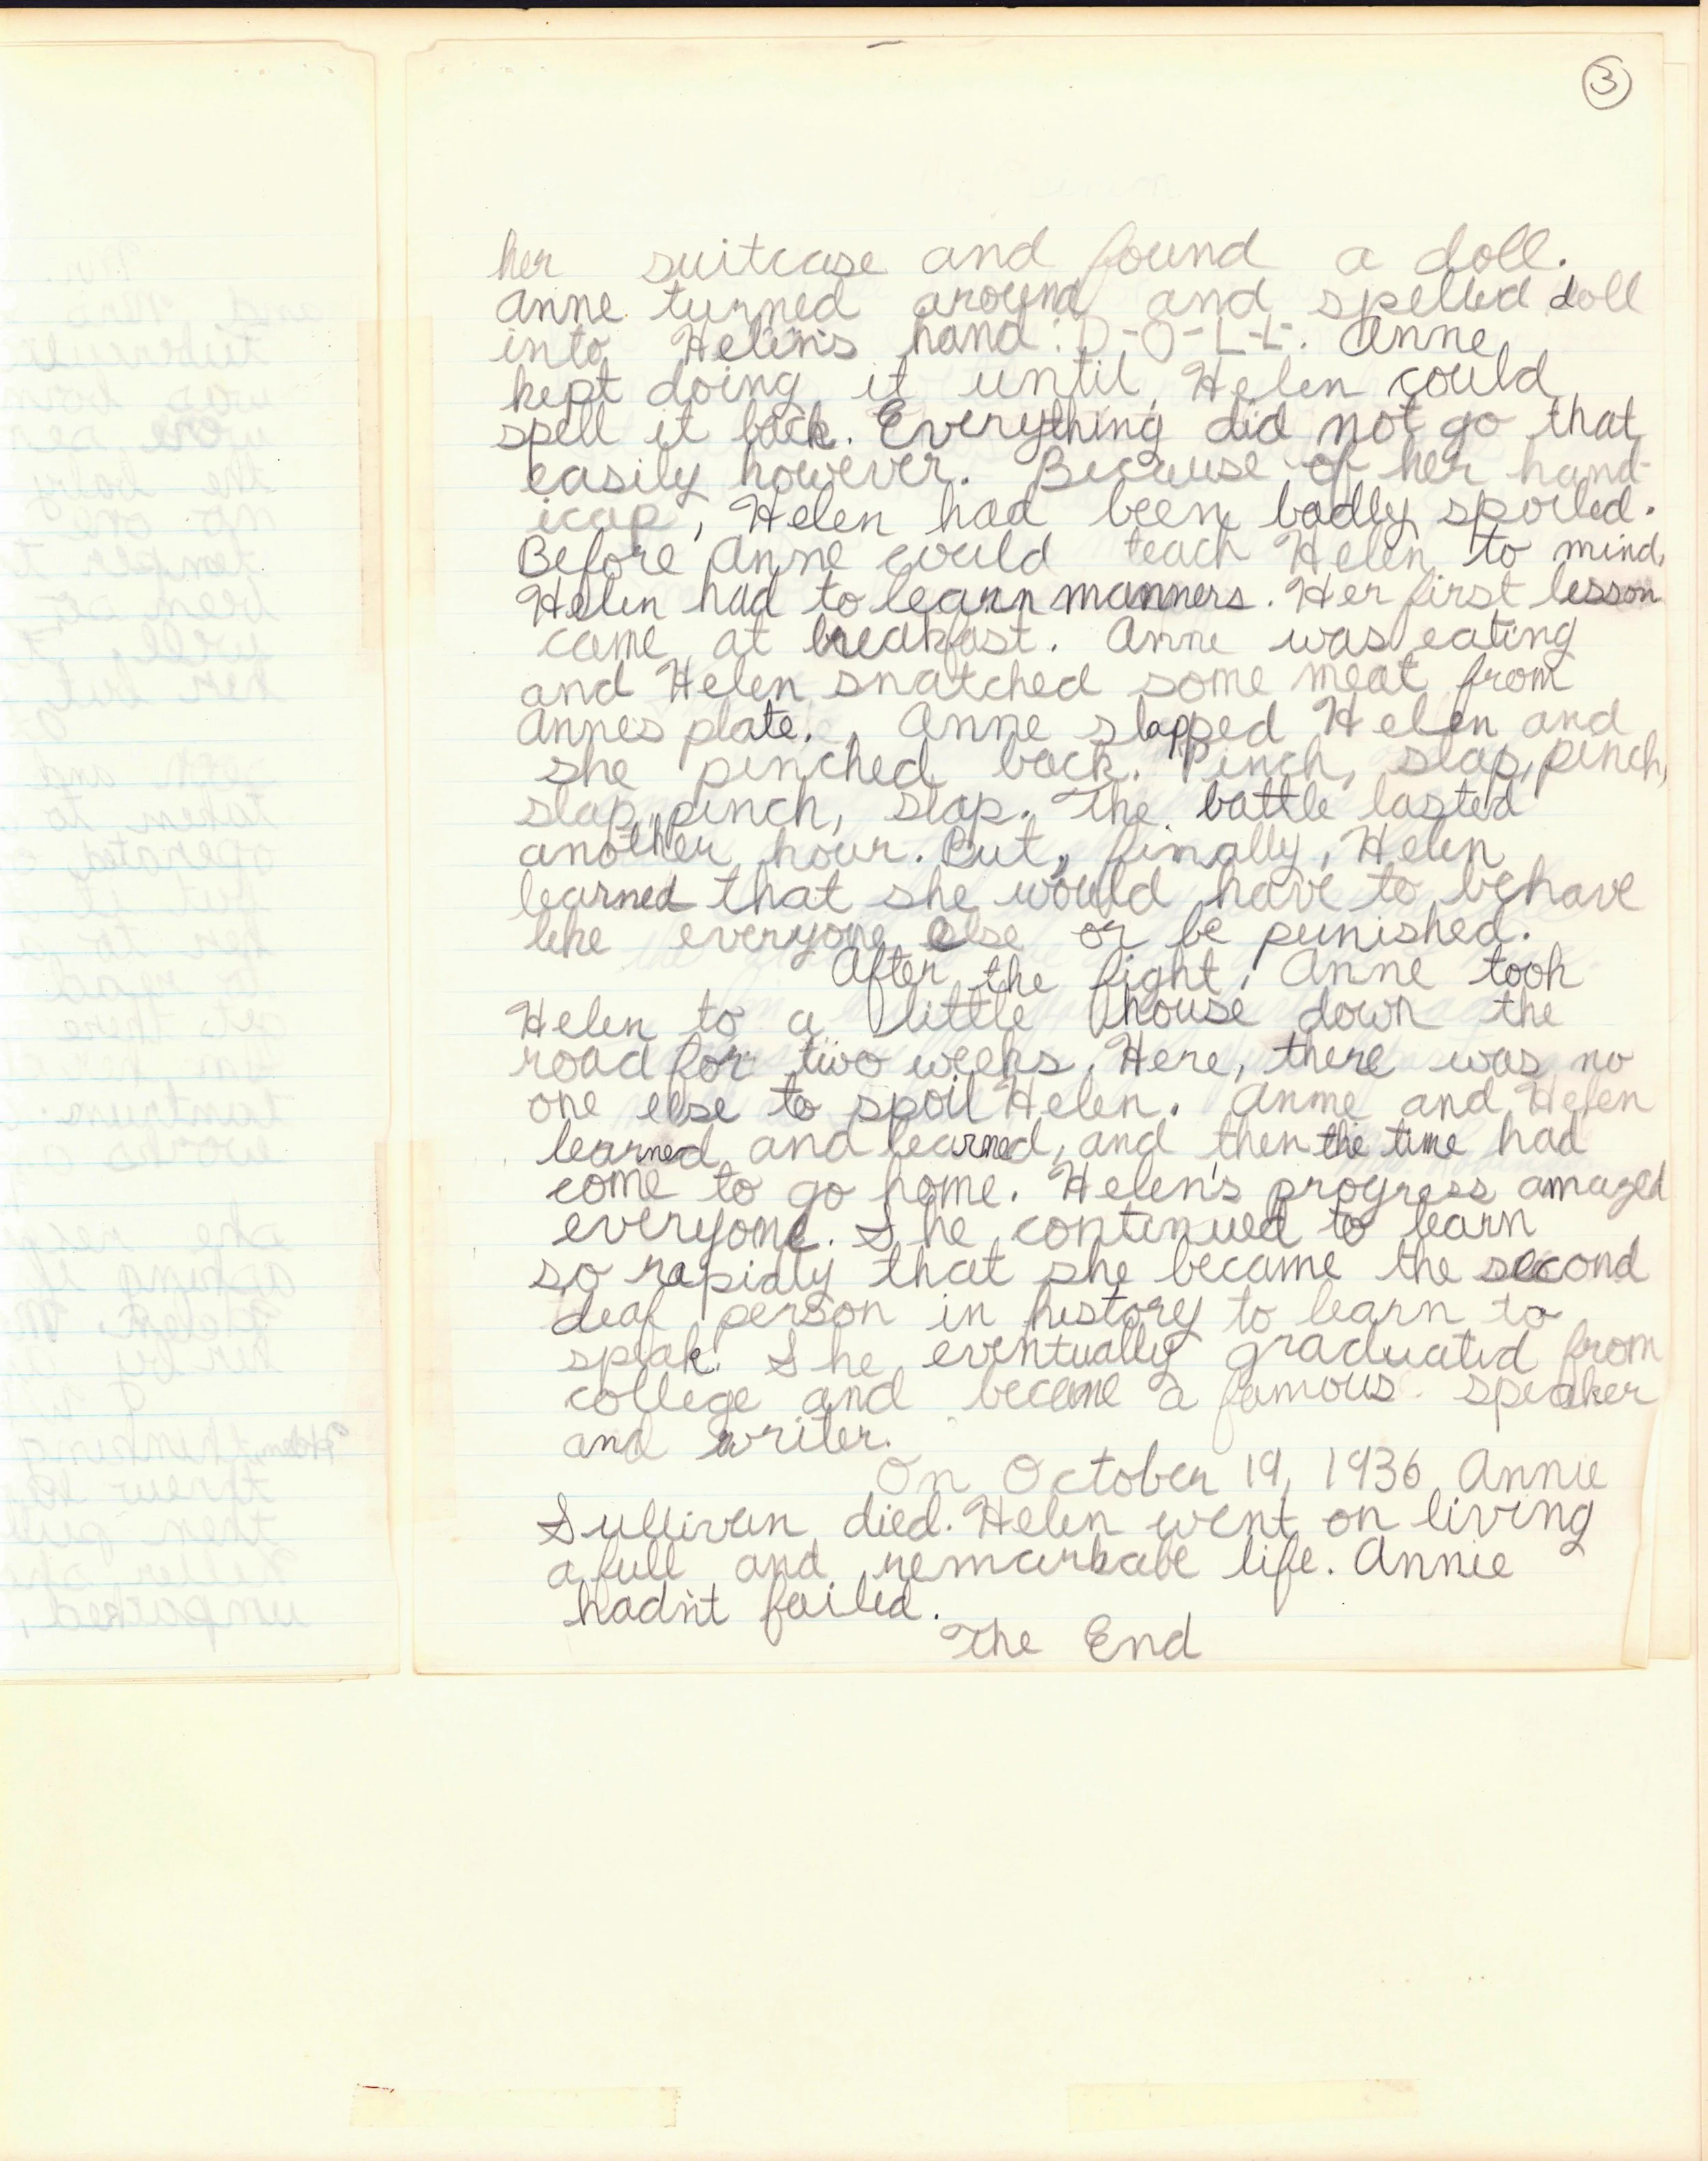 3
her suitcase and found a doll.
Anne turned around and spelled doll
into Helen's hand: D-O-L-L. Anne
kept doing it until Helen could
spell it back. Everything did not go that
easily however. Because of her hand-
icap, Helen had been badly spoiled.
Before Anne could teach Helen to mind,
Helen had to learn manners. Her first lesson
came at breakfast. Anne was eating
and Helen snatched some meat from
Annes plate. Anne slapped Helen and
she pinched back. Pinch, slap, pinch,
slap, pinch, slap. The battle lasted
another hour. But, finally, Helen
learned that she would have to behave
like everyone else or be punished.
After the fight, Anne took
Helen to a little house down the
road for two weeks. Here, there was no
one else to spoil Helen. Anne and Helen
learned and learned, and then the time had
come to go home. Helen's progress amazed
everyone. She continued to learn
so rapidly that she became the second
deaf person in history to learn to
speak. She eventually graduated from
college and became a famous speaker
and writer.
On October 19, 1936 Annie
Sullivan died. Helen went on living
a full and remarkable life. Annie
hadn't failed.
The End